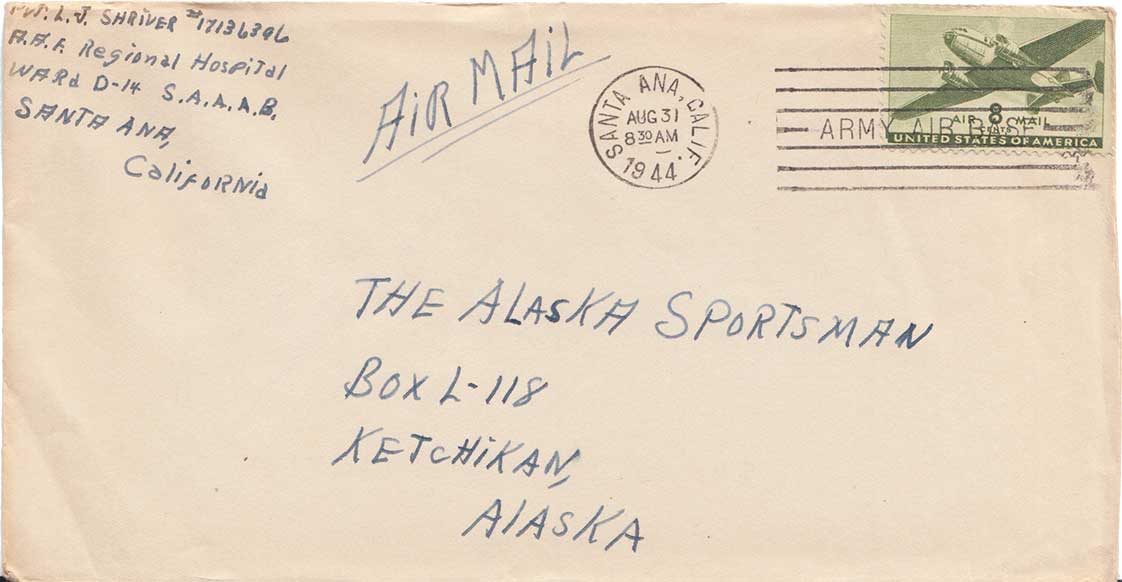 Pvt. L. J. SHRIVER #17136396
A.A.F. Regional Hospital
WARd D-14 S.A.A.A.B.
SANTA ANA,
California
AiR MAiL
SANTA ANA, CALIF.
AUG 31
8 30 AM
1944
ARMY AIR BASE
AIR 8 MAIL
CENTS
UNITED STATES OF AMERICA
THE ALASKA SPORTSMAN
BOX L-118
KETCHiKAN,
AlASKA